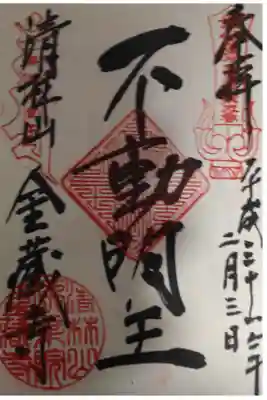 奉拝
平成二十六年
二月三日
不動明王
清林山
金蔵寺